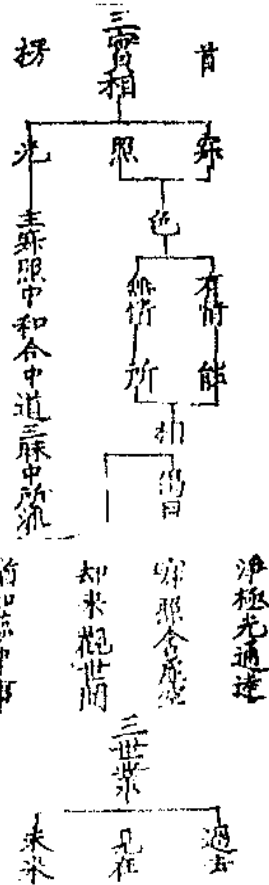 首
楞
三實相
寂
照
光
色
有情
無情
能
所
相
偈曰
主寂照中和合中道三昧中所流
淨極光通達
寂照含虛空
却來觀世間
猶如夢中事
三世業
過去
見在
未來